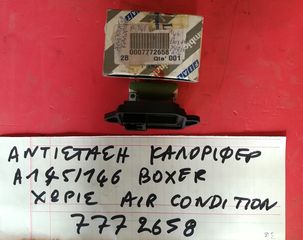 0007772658
28 Qte' 001
ΑΝΤΙΣΤΑΣΗ ΚΑΛΟΡΙΦΕΡ
Α145/146 BOXER
ΧΩΡΙΣ AIR CONDITION
7772658